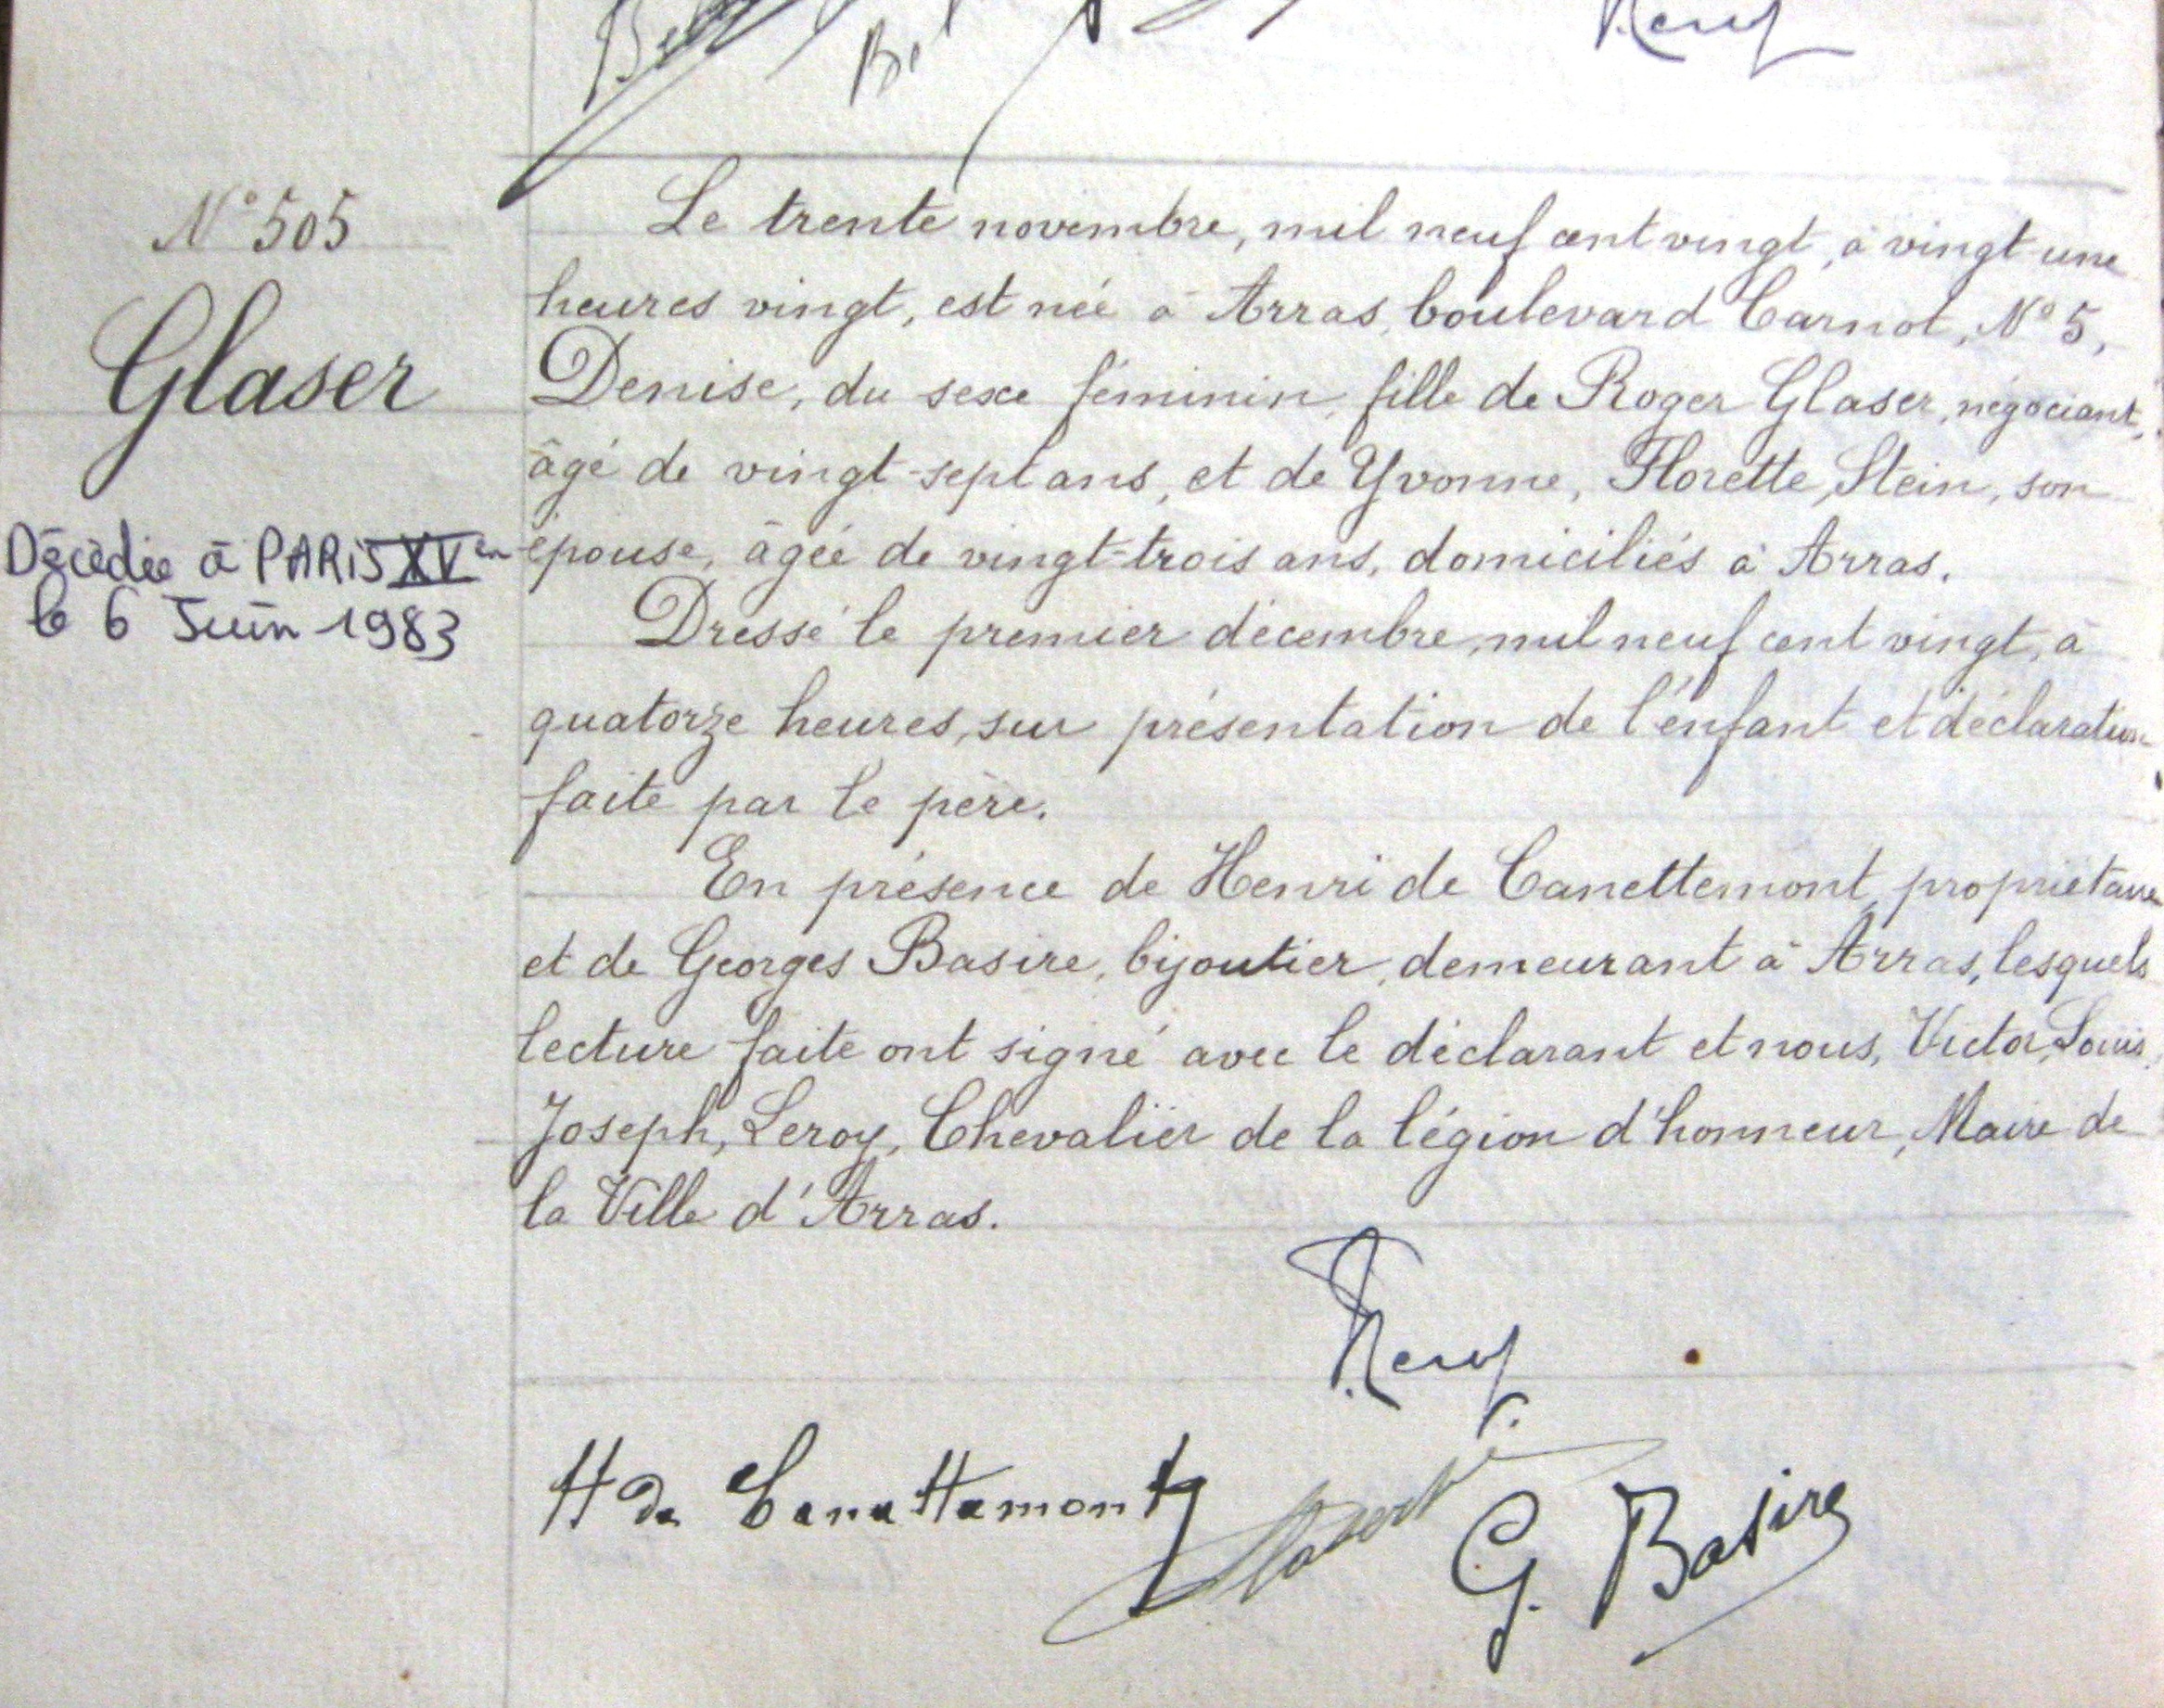 N° 505
Glaser
Décédée à PARIS XVen
le 6 Juin 1983
Le trente novembre, mil neuf cent vingt, à vingt une
heures vingt, est née à Arras, boulevard Carnot, N° 5,
Denise, du sexe féminin, fille de Roger Glaser, négociant,
âgé de vingt-sept ans, et de Yvonne, Florette, Stein, son
épouse, âgée de vingt-trois ans, domiciliés à Arras.
Dressé le premier décembre, mil neuf cent vingt, à
quatorze heures, sur présentation de l'enfant et déclaration
faite par le père.
En présence de Henri de Canettemont, propriétaire
et de Georges Basire, bijoutier, demeurant à Arras, lesquels
lecture faite ont signé avec le déclarant et nous, Victor, Louis,
Joseph, Leroy, Chevalier de la légion d'honneur, Maire de
la Ville d'Arras.
H de Canettemont
G. Basire